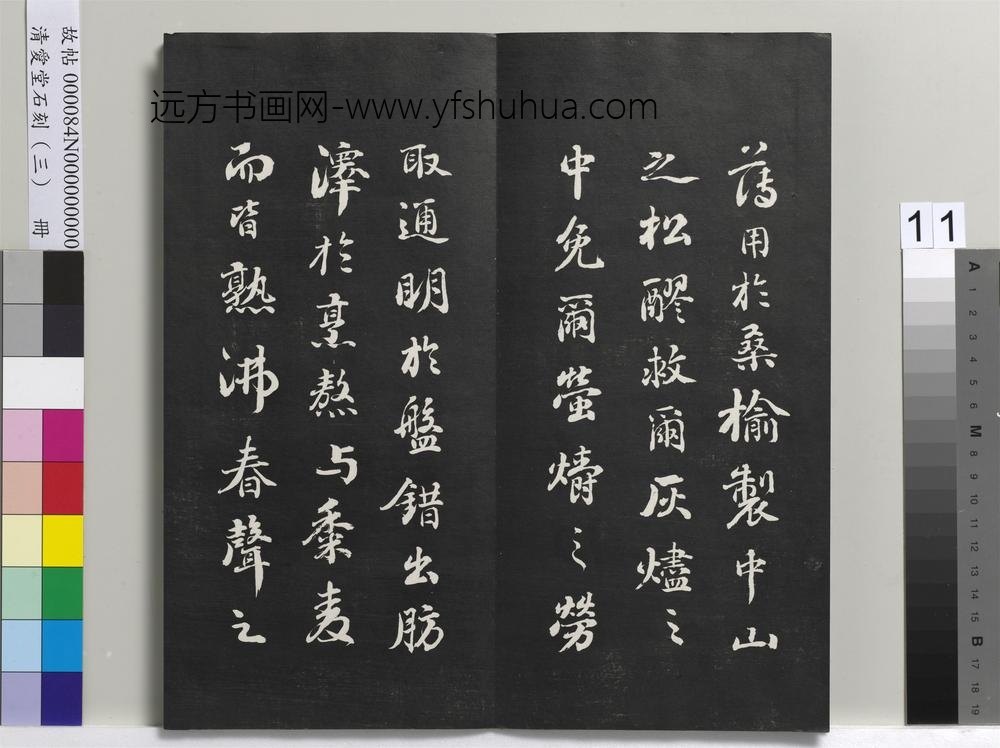 薄用於桑榆製中山
之松醪救爾灰燼之
中免爾螢爝之勞
取通明於盤錯出肪
澤於烹熬与黍麦
而皆熟沸春聲之
远方书画网-www.yfshuhua.com
故帖 000084N0000000000
清愛堂石刻(三) 冊
11
A 1 2 3 4 5 6 M 8 9 10 11 12 13 14 15 B 17 18 19